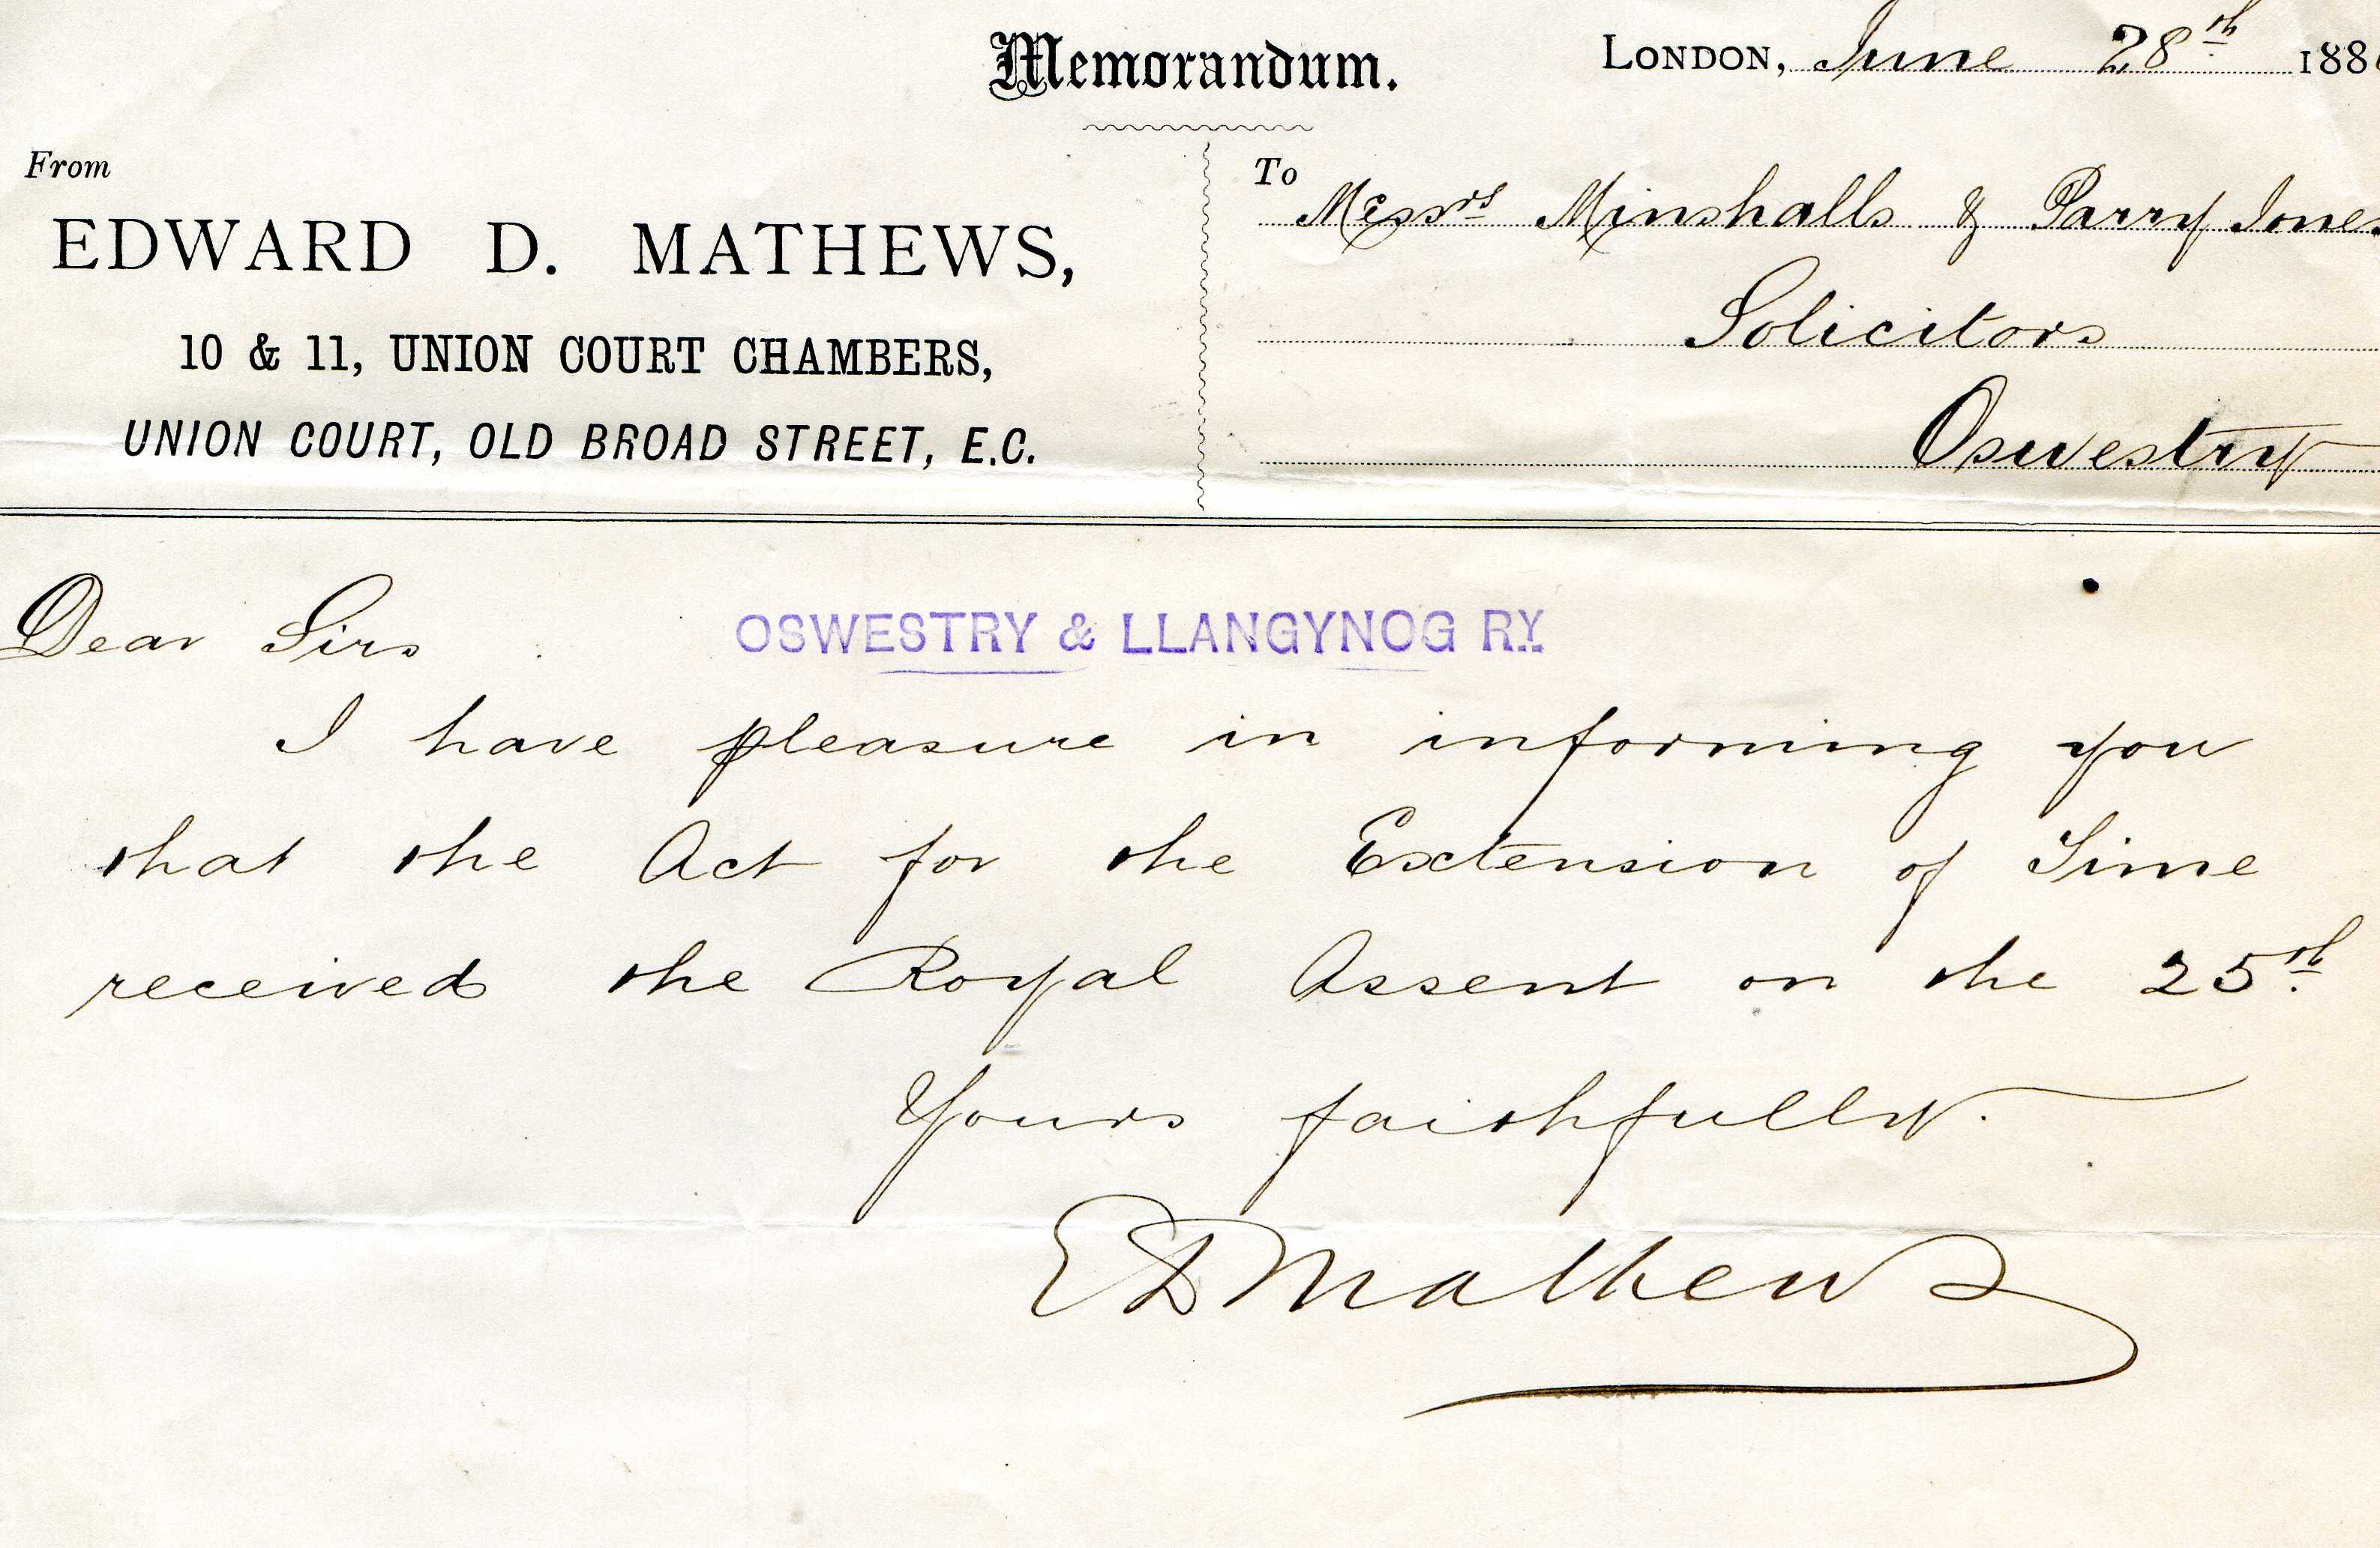 Memorandum.
LONDON, June 28th 188
From
EDWARD D. MATHEWS,
10 & 11, UNION COURT CHAMBERS,
UNION COURT, OLD BROAD STREET, E.C.
To
Messrs Minshalls & Parry Jones
Solicitors
Oswestry
Dear Sirs
OSWESTRY & LLANGYNOG RY.
I have pleasure in informing you
that the Act for the Extension of Time
received the Royal Assent on the 25th.
Yours faithfully.
ED Mathews